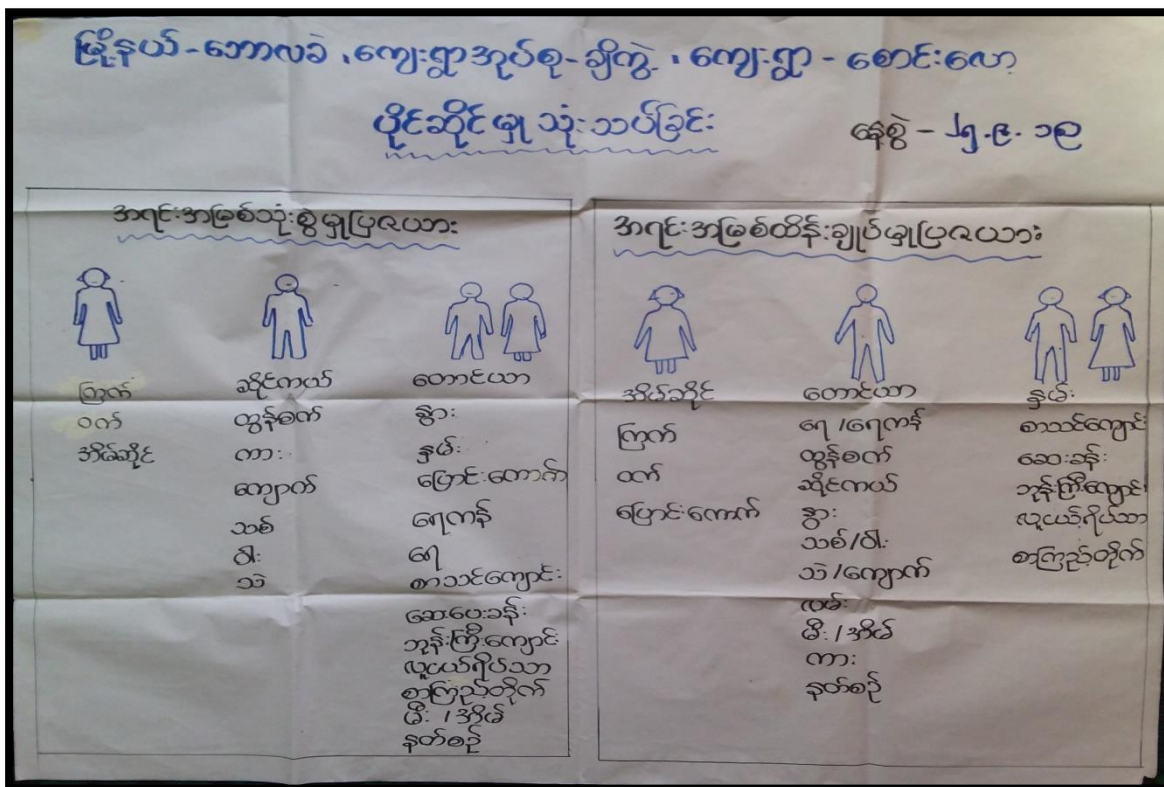 မြို့နယ်-ဘောလခဲ ၊ ကျေးရွာအုပ်စု-ချီကွဲ ၊ ကျေးရွာ - စောင်းလော့
ပိုင်ဆိုင်မှု သုံးသပ်ခြင်း
နေ့စွဲ - ၂၅.၉.၁၉
အရင်းအမြစ်သုံးစွဲမှုပြဇယား
ကြက်
ဝက်
အိမ်ဆိုင်
ဆိုင်ကယ်
ထွန်စက်
ကား
ကျောက်
သစ်
ဝါး
သဲ
တောင်ယာ
နွား
နွမ်း
ပြောင်းကောက်
ရေကန်
ရေ
စာသင်ကျောင်း
ဆေးပေးခန်း
ဘုန်းကြီးကျောင်း
လူငယ်ရိပ်သာ
စာကြည့်တိုက်
မီး / အိမ်
နတ်စဉ်
အရင်းအမြစ်ထိန်းချုပ်မှုပြဇယား
အိမ်ဆိုင်
ကြက်
ဝက်
ပြောင်းကောက်
တောင်ယာ
ရေ /ရေကန်
ထွန်စက်
ဆိုင်ကယ်
နွား
သစ်/ဝါး
သဲ /ကျောက်
လမ်း
မီး / အိမ်
ကား
နတ်စဉ်
နွမ်း
စာသင်ကျောင်း
ဆေးခန်း
ဘုန်းကြီးကျောင်း
လူငယ်ရိပ်သာ
စာကြည့်တိုက်